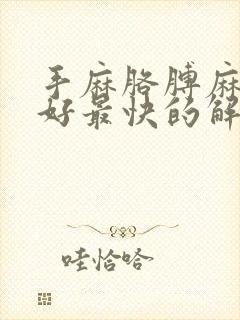 手麻胳膊麻
好最快的解
哇恰哈